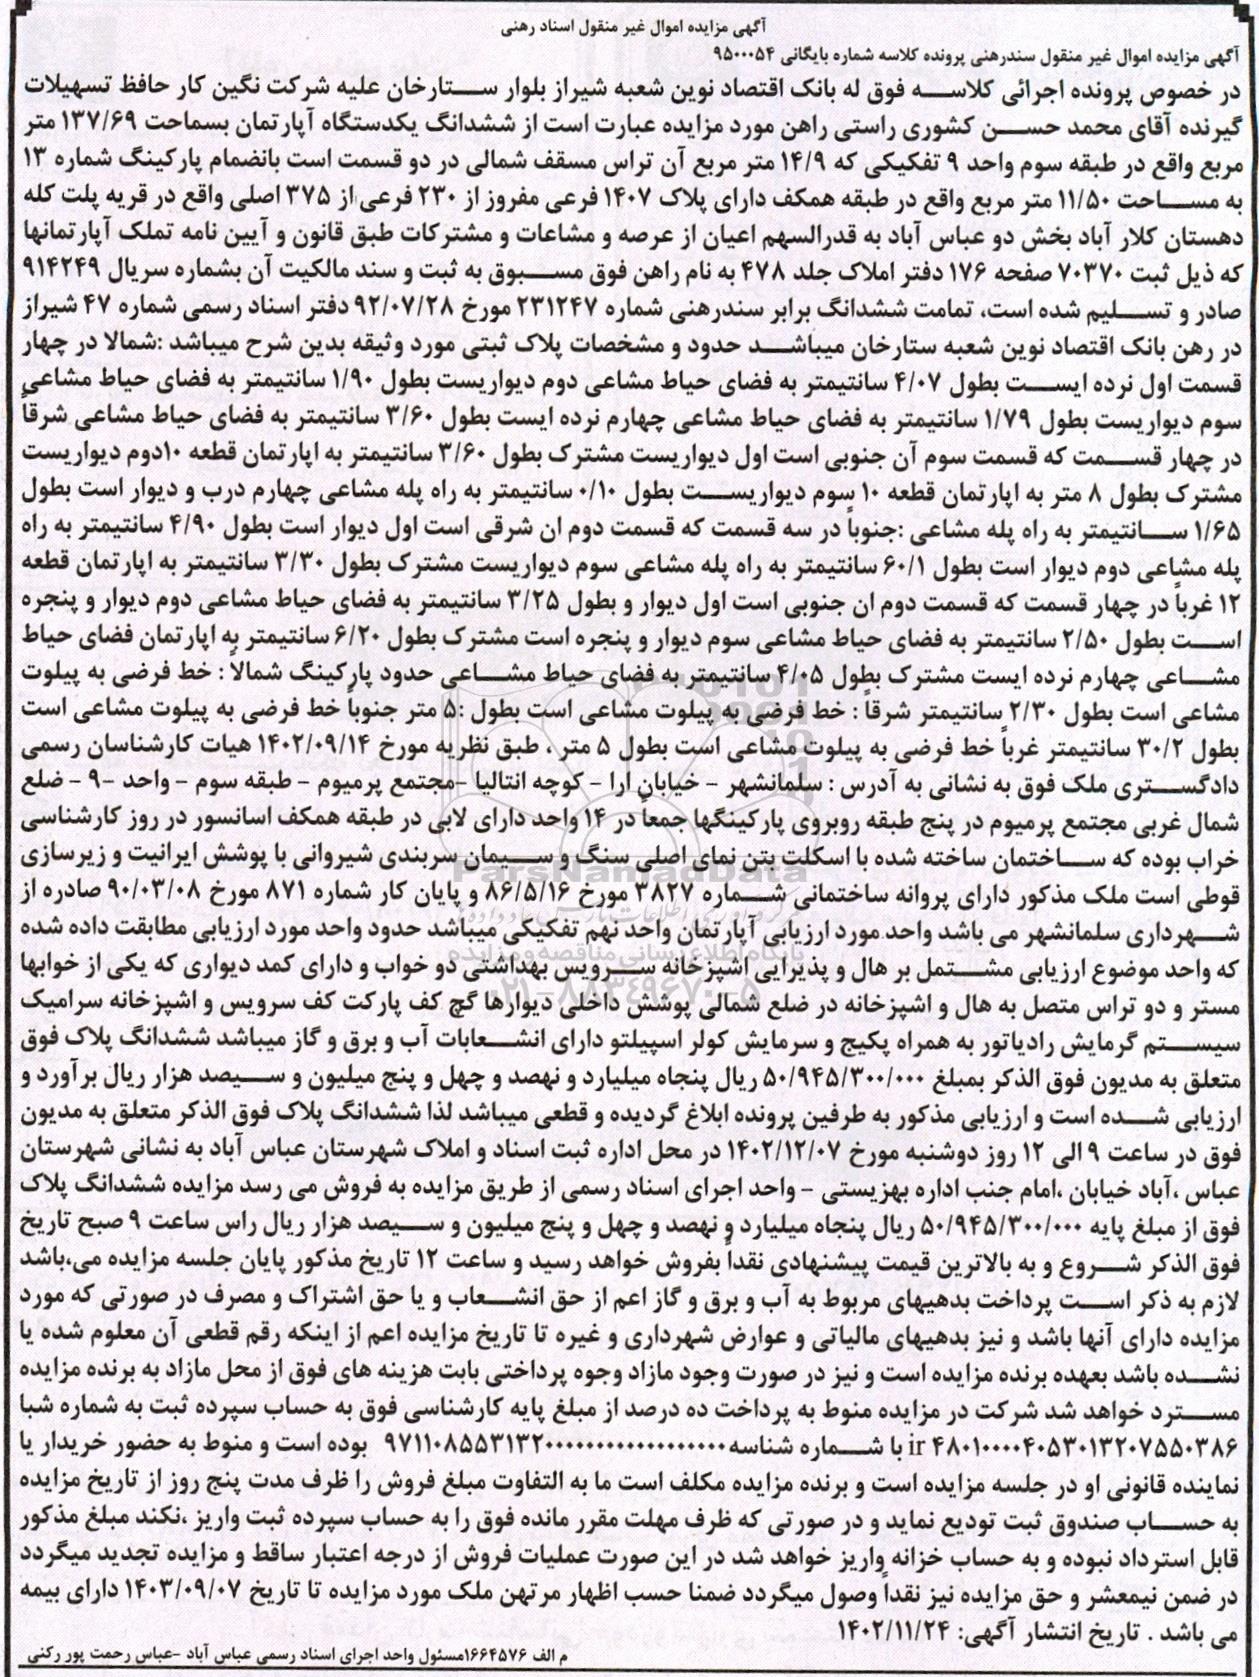 آگهی مزایده اموال غیر منقول اسناد رهنی
آگهی مزایده اموال غیر منقول سندرهنی پرونده کلاسه شماره بایگانی ۹۵۰۰۰۵۴
در خصوص پرونده اجرائی کلاسه فوق له بانک اقتصاد نوین شعبه شیراز بلوار ستارخان علیه شرکت نگین کار حافظ تسهیلات
گیرنده آقای محمد حسن کشوری راستی راهن مورد مزایده عبارت است از ششدانگ یکدستگاه آپارتمان بسماحت ۱۳۷/۶۹ متر
مربع واقع در طبقه سوم واحد ۹ تفکیکی که ۱۴/۹ متر مربع آن تراس مسقف شمالی در دو قسمت است بانضمام پارکینگ شماره ۱۳
به مساحت ۱۱/۵۰ متر مربع واقع در طبقه همکف دارای پلاک ۱۴۰۷ فرعی مفروز از ۲۳۰ فرعی از ۳۷۵ اصلی واقع در قریه پلت کله
دهستان کلار آباد بخش دو عباس آباد به قدرالسهم اعیان از عرصه و مشاعات و مشترکات طبق قانون و آیین نامه تملک آپارتمانها
که ذیل ثبت ۷۰۳۷۰ صفحه ۱۷۶ دفتر املاک جلد ۴۷۸ به نام راهن فوق مسبوق به ثبت و سند مالکیت آن بشماره سریال ۹۱۴۲۴۹
صادر و تسلیم شده است، تمامت ششدانگ برابر سندرهنی شماره ۲۳۱۲۴۷ مورخ ۹۲/۰۷/۲۸ دفتر اسناد رسمی شماره ۴۷ شیراز
در رهن بانک اقتصاد نوین شعبه ستارخان میباشد حدود و مشخصات پلاک ثبتی مورد وثیقه بدین شرح میباشد :شمالا در چهار
قسمت اول نرده ایست بطول ۴/۰۷ سانتیمتر به فضای حیاط مشاعی دوم دیواریست بطول ۱/۹۰ سانتیمتر به فضای حیاط مشاعی
سوم دیواریست بطول ۱/۷۹ سانتیمتر به فضای حیاط مشاعی چهارم نرده ایست بطول ۳/۶۰ سانتیمتر به فضای حیاط مشاعی شرقاً
در چهار قسمت که قسمت سوم آن جنوبی است اول دیواریست مشترک بطول ۳/۶۰ سانتیمتر به اپارتمان قطعه ۱۰دوم دیواریست
مشترک بطول ۸ متر به اپارتمان قطعه ۱۰ سوم دیواریست بطول ۰/۱۰ سانتیمتر به راه پله مشاعی چهارم درب و دیوار است بطول
۱/۶۵ سانتیمتر به راه پله مشاعی :جنوباً در سه قسمت که قسمت دوم ان شرقی است اول دیوار است بطول ۴/۹۰ سانتیمتر به راه
پله مشاعی دوم دیوار است بطول ۶۰/۱ سانتیمتر به راه پله مشاعی سوم دیواریست مشترک بطول ۳/۳۰ سانتیمتر به اپارتمان قطعه
۱۲ غرباً در چهار قسمت که قسمت دوم ان جنوبی است اول دیوار و بطول ۳/۲۵ سانتیمتر به فضای حیاط مشاعی دوم دیوار و پنجره
است بطول ۲/۵۰ سانتیمتر به فضای حیاط مشاعی سوم دیوار و پنجره است مشترک بطول ۶/۲۰ سانتیمتر به اپارتمان فضای حیاط
مشاعی چهارم نرده ایست مشترک بطول ۴/۰۵ سانتیمتر به فضای حیاط مشاعی حدود پارکینگ شمالاً : خط فرضی به پیلوت
مشاعی است بطول ۲/۳۰ سانتیمتر شرقاً : خط فرضی به پیلوت مشاعی است بطول :۵ متر جنوباً خط فرضی به پیلوت مشاعی است
بطول ۳۰/۲ سانتیمتر غرباً خط فرضی به پیلوت مشاعی است بطول ۵ متر ، طبق نظریه مورخ ۱۴۰۲/۰۹/۱۴ هیات کارشناسان رسمی
دادگستری ملک فوق به نشانی به آدرس : سلمانشهر - خیابان ارا - کوچه انتالیا -مجتمع پرمیوم - طبقه سوم - واحد -۹ - ضلع
شمال غربی مجتمع پرمیوم در پنج طبقه روبروی پارکینگها جمعاً در ۱۴ واحد دارای لابی در طبقه همکف اسانسور در روز کارشناسی
خراب بوده که ساختمان ساخته شده با اسکلت بتن نمای اصلی سنگ و سیمان سربندی شیروانی با پوشش ایرانیت و زیرسازی
قوطی است ملک مذکور دارای پروانه ساختمانی شماره ۳۸۲۷ مورخ ۸۶/۵/۱۶ و پایان کار شماره ۸۷۱ مورخ ۹۰/۰۳/۰۸ صادره از
شهرداری سلمانشهر می باشد واحد مورد ارزیابی آپارتمان واحد نهم تفکیکی میباشد حدود واحد مورد ارزیابی مطابقت داده شده
که واحد موضوع ارزیابی مشتمل بر هال و پذیرایی اشپزخانه سرویس بهداشتی دو خواب و دارای کمد دیواری که یکی از خوابها
مستر و دو تراس متصل به هال و اشپزخانه در ضلع شمالی پوشش داخلی دیوارها گچ کف پارکت کف سرویس و اشپزخانه سرامیک
سیستم گرمایش رادیاتور به همراه پکیج و سرمایش کولر اسپیلتو دارای انشعابات آب و برق و گاز میباشد ششدانگ پلاک فوق
متعلق به مدیون فوق الذکر بمبلغ ۵۰/۹۴۵/۳۰۰/۰۰۰ ریال پنجاه میلیارد و نهصد و چهل و پنج میلیون و سیصد هزار ریال برآورد و
ارزیابی شده است و ارزیابی مذکور به طرفین پرونده ابلاغ گردیده و قطعی میباشد لذا ششدانگ پلاک فوق الذکر متعلق به مدیون
فوق در ساعت ۹ الی ۱۲ روز دوشنبه مورخ ۱۴۰۲/۱۲/۰۷ در محل اداره ثبت اسناد و املاک شهرستان عباس آباد به نشانی شهرستان
عباس ،آباد خیابان ،امام جنب اداره بهزیستی - واحد اجرای اسناد رسمی از طریق مزایده به فروش می رسد مزایده ششدانگ پلاک
فوق از مبلغ پایه ۵۰/۹۴۵/۳۰۰/۰۰۰ ریال پنجاه میلیارد و نهصد و چهل و پنج میلیون و سیصد هزار ریال راس ساعت ۹ صبح تاریخ
فوق الذکر شروع و به بالاترین قیمت پیشنهادی نقداً بفروش خواهد رسید و ساعت ۱۲ تاریخ مذکور پایان جلسه مزایده می،باشد
لازم به ذکر است پرداخت بدهیهای مربوط به آب و برق و گاز اعم از حق انشعاب و یا حق اشتراک و مصرف در صورتی که مورد
مزایده دارای آنها باشد و نیز بدهیهای مالیاتی و عوارض شهرداری و غیره تا تاریخ مزایده اعم از اینکه رقم قطعی آن معلوم شده یا
نشده باشد بعهده برنده مزایده است و نیز در صورت وجود مازاد وجوه پرداختی بابت هزینه های فوق از محل مازاد به برنده مزایده
مسترد خواهد شد شرکت در مزایده منوط به پرداخت ده درصد از مبلغ پایه کارشناسی فوق به حساب سپرده ثبت به شماره شبا
ir ۴۸۰۱۰۰۰۰۴۰۵۳۰۱۳۲۰۷۵۵۰۳۸۶ با شماره شناسه ۹۷۱۱۰۸۵۵۳۱۳۲۰۰۰۰۰۰۰۰۰۰۰۰۰۰۰۰۰۰ بوده است و منوط به حضور خریدار یا
نماینده قانونی او در جلسه مزایده است و برنده مزایده مکلف است ما به التفاوت مبلغ فروش را ظرف مدت پنج روز از تاریخ مزایده
به حساب صندوق ثبت تودیع نماید و در صورتی که ظرف مهلت مقرر مانده فوق را به حساب سپرده ثبت واریز ،نکند مبلغ مذکور
قابل استرداد نبوده و به حساب خزانه واریز خواهد شد در این صورت عملیات فروش از درجه اعتبار ساقط و مزایده تجدید میگردد
در ضمن نیمعشر و حق مزایده نیز نقداً وصول میگردد ضمنا حسب اظهار مرتهن ملک مورد مزایده تا تاریخ ۱۴۰۳/۰۹/۰۷ دارای بیمه
می باشد . تاریخ انتشار آگهی: ۱۴۰۲/۱۱/۲۴
م الف ۱۶۶۴۵۷۶مسئول واحد اجرای اسناد رسمی عباس آباد -عباس رحمت پور رکنی
ParsNamadData
پایگاه اطلاع رسانی مناقصه و مزایده
۰۲۱-۸۸۳۴۹۶۷۰-۵